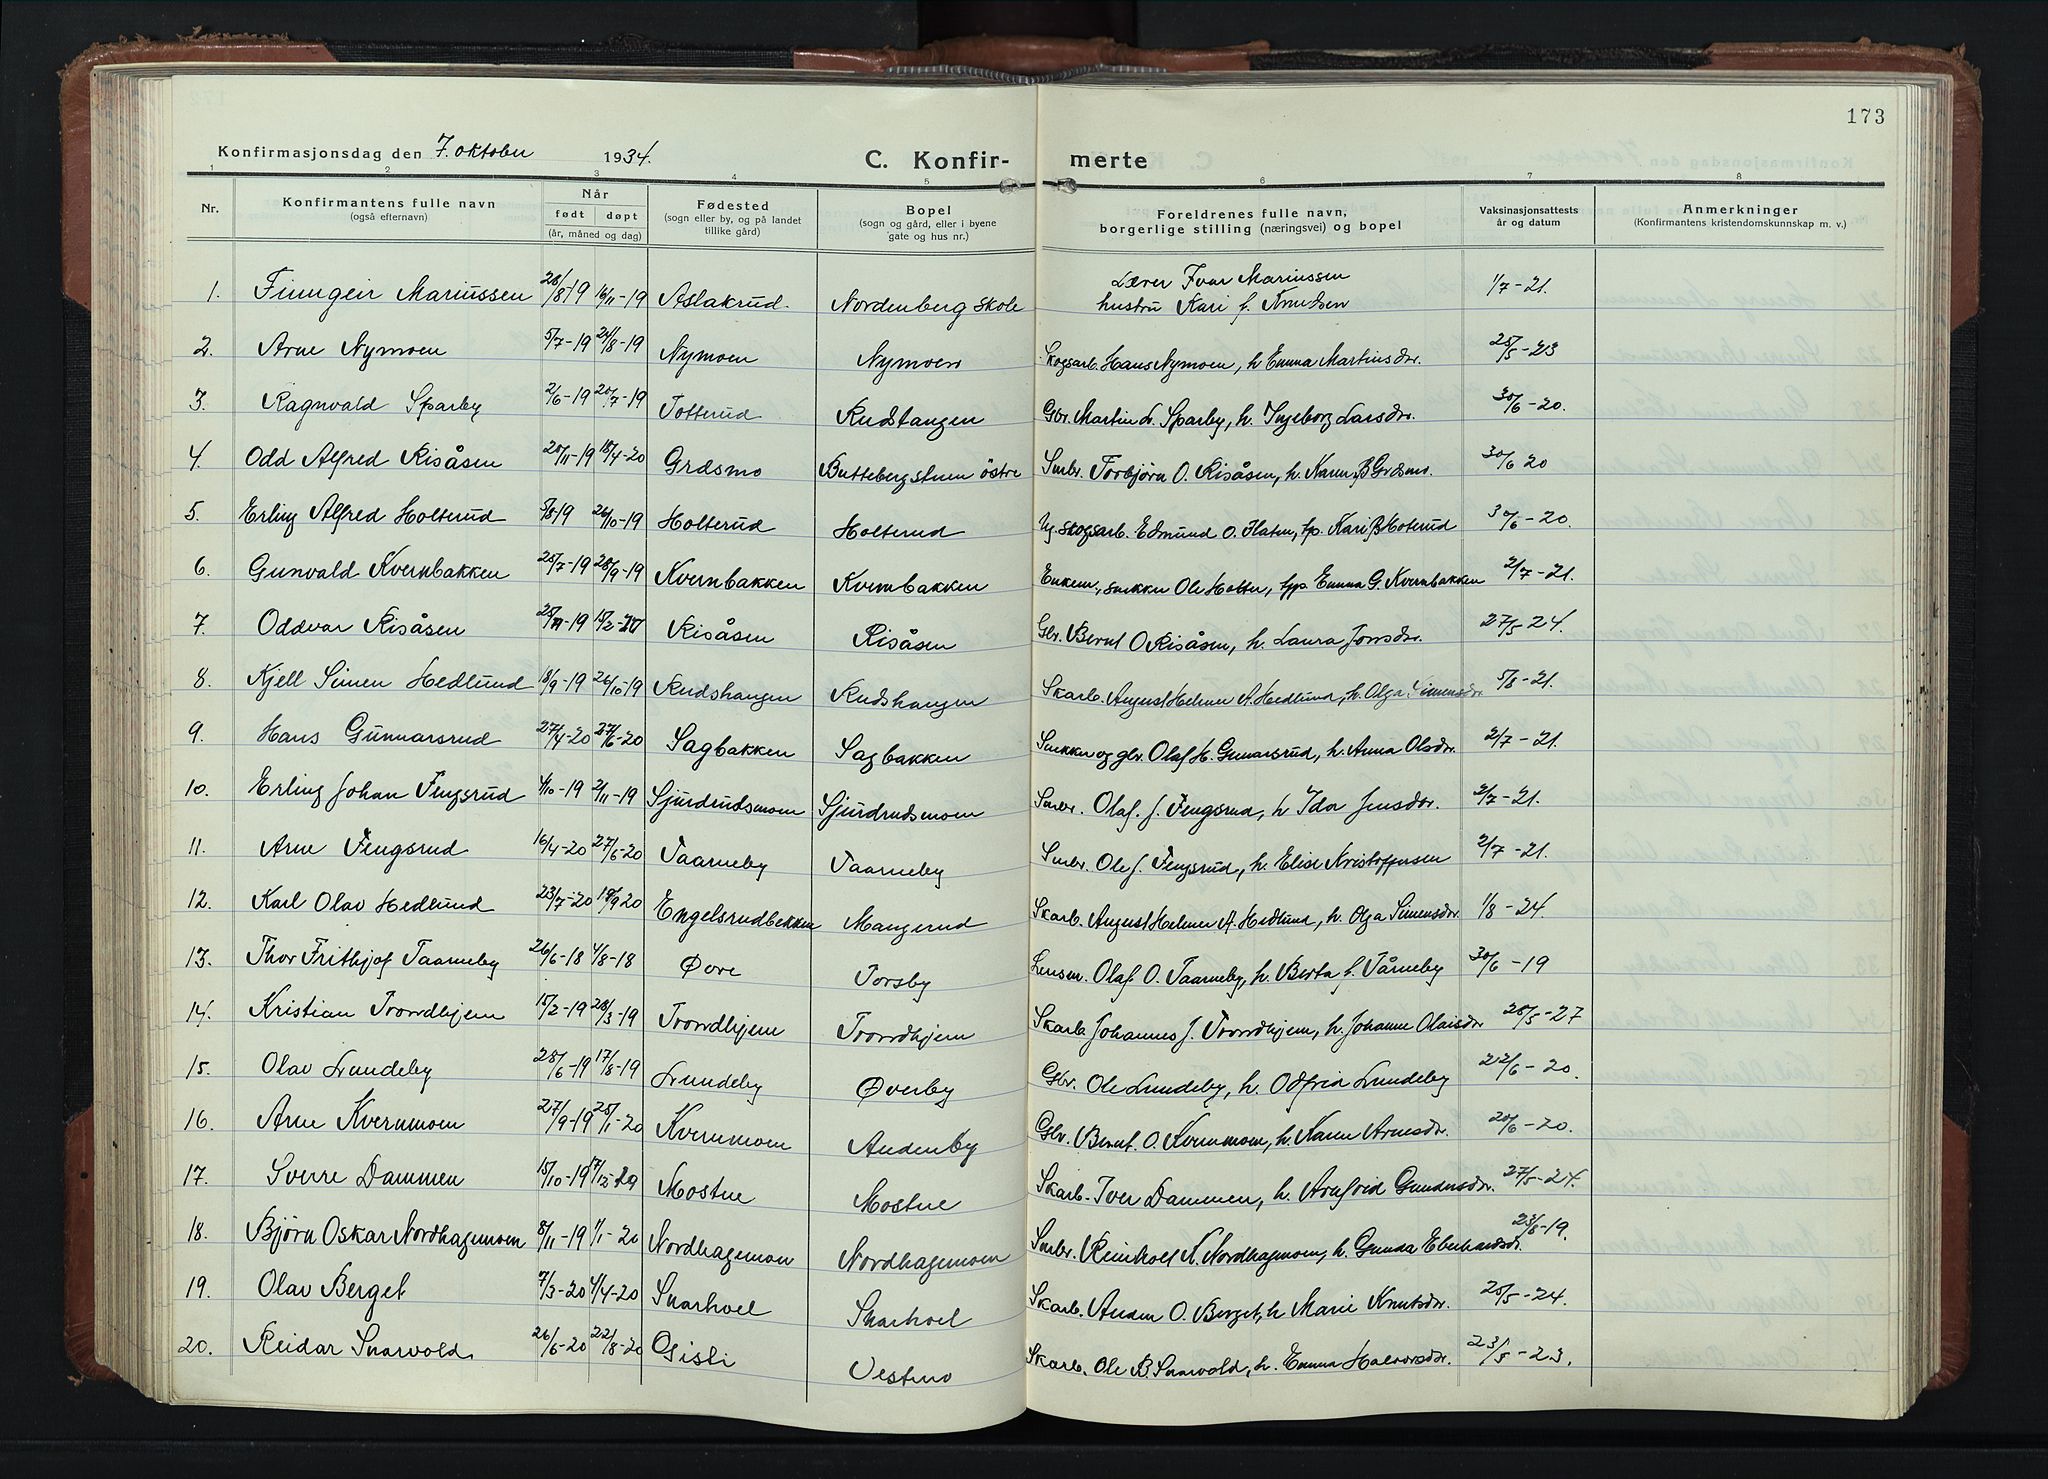 173
Konfirmasjonsdag den 7. oktober 1934.
C. Konfir- merte
1 2 3 4 5 6 7 8
Nr.
Konfirmantens fulle navn
(også efternavn)
Når
født døpt
(år, måned og dag)
Fødested
(sogn eller by, og på landet
tillike gård)
Bopel
(sogn og gård, eller i byene
gate og hus nr.)
Foreldrenes fulle navn,
borgerlige stilling (næringsvei) og bopel
Vaksinasjonsattests
år og datum
Anmerkninger
(Konfirmantens kristendomskunnskap m. v.)
1. Finngeir Mariussen 28/8-19 16/11-19 Aslakrud. Nordenberg skole Lærer Ivar Mariussen 1/7-21.
hustru Kari f. Knudsen
2. Arne Nymoen 5/7-19 24/8-19 Nymoen Nymoen Skogsarb. Hans Nymoen, h Emma Martinsdr. 25/5-23
3. Ragnvald Sparby 2/6-19 20/7-19 Totterud Rudstangen Gbr. Martin L. Sparby, h. Ingeborg Larsdr. 30/6-20.
4. Odd Alfred Risåsen 20/11-19 18/4-20 Grdsmo Buttebergstuen østre Smbr. Torbjörn O. Risåsen, h. Karen B Grdsmo. 30/6 20
5. Erling Alfred Holterud 3/8 19 26/10-19 Holterud Holterud Ug. skogsarb. Edmund O. Flaten, tp. Kari B Hoterud 30/6-20.
6. Gunvald Kvernbakken 25/7-19 28/9-19 Kvernbakken Kvernbakken Enkem., snekker Ole Holter, tpp. Emma G. Kvernbakken 2/7-21.
7. Oddvar Risåsen 25/11-19 15/2-20 Risåsen Risåsen Gbr. Bernt O Risåsen, h. Laura Jonsdr. 27/5-24.
8. Kjell Simen Hedlund 18/9-19 26/10-19 Rudshangen Rudshangen Skarb. August Helmer A. Hedlund, h. Olga Simensdr 5/8-21.
9. Hans Gunnarsrud 27/4-20 27/6-20 Sagbakken Sagbakken Snekker og gbr. Olaf H. Gunnarsrud, h. Anna Olsdr. 2/7-21.
10. Erling Johan Fengsrud 4/10-19 2/11-19 Sjurdrudsmoen Sjurdrudsmoen Smbr. Olaf J. Fengsrud, h Ida Jensdr. 2/7-21.
11. Arne Fengsrud 16/4-20 27/6-20 Taarneby Taarneby Smbr. Ole J. Fengsrud, h. Elise Kristoffersen 2/7-21.
12. Karl Olav Hedlund 23/7-20 19/9 20 Engelsrudbekken Mangerud Skarb. August Helmer A. Hedlund, h. Olga Simensdr. 1/8-24.
13. Thor Frithjof Taarneby 26/6-18 4/8-18 Øvre Torsby Lensm. Olaf O. Taarneby, h. Berta f. Tårneby 30/6-19
14. Kristian Trondhjem 15/2-19 28/3-19 Trondhjem Trondhjem Skarb. Johannes J. Trondhjem, h. Johanne Olaisdr 28/5-27
15. Olav Lundeby 28/6-19 17/8-19 Lundeby Øverby Gbr. Ole Lundeby, h. Odfrid Lundeby 22/6-20.
16. Arne Kvernmoen 27/9-19 25/1-20 Kvernmoen Audenby Gbr. Bernt O. Kvernmoen, h. Karen Arnesdr. 20/6-20.
17. Sverre Dammen 15/10-19 7/12-19 Mostue Mostue Skarb. Iver Dammen, h. Arnfrid Gundersdr. 27/5-24.
18. Björn Oskar Nordhagemoen 8/11-19 1/1-20 Nordhagemoen Nordhagemoen Smbr. Reinholt N. Nordhagmoen, h. Gunda Eberhardsdr. 23/8-19.
19. Olav Berget 7/3-20 4/4-20 Snarhoel Snarhoel Skarb. Anden O. Berget, h Marie Knutsdr. 20/5-24.
20. Reidar Snarvold 26/6-20 22/8-20 Gisli Vestmo Skarb. Ole B. Snarvold, h. Emma Halvorsdr. 23/5-23.